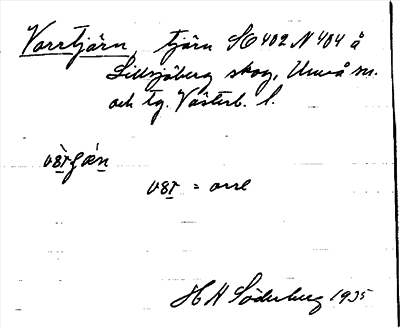 Vorrtjärn, tjärn SO 402 N 404 å
Lillsjöberg skog, Umeå sn.
och tg. Västerb. l.
vär = orre
H H Söderberg 1935